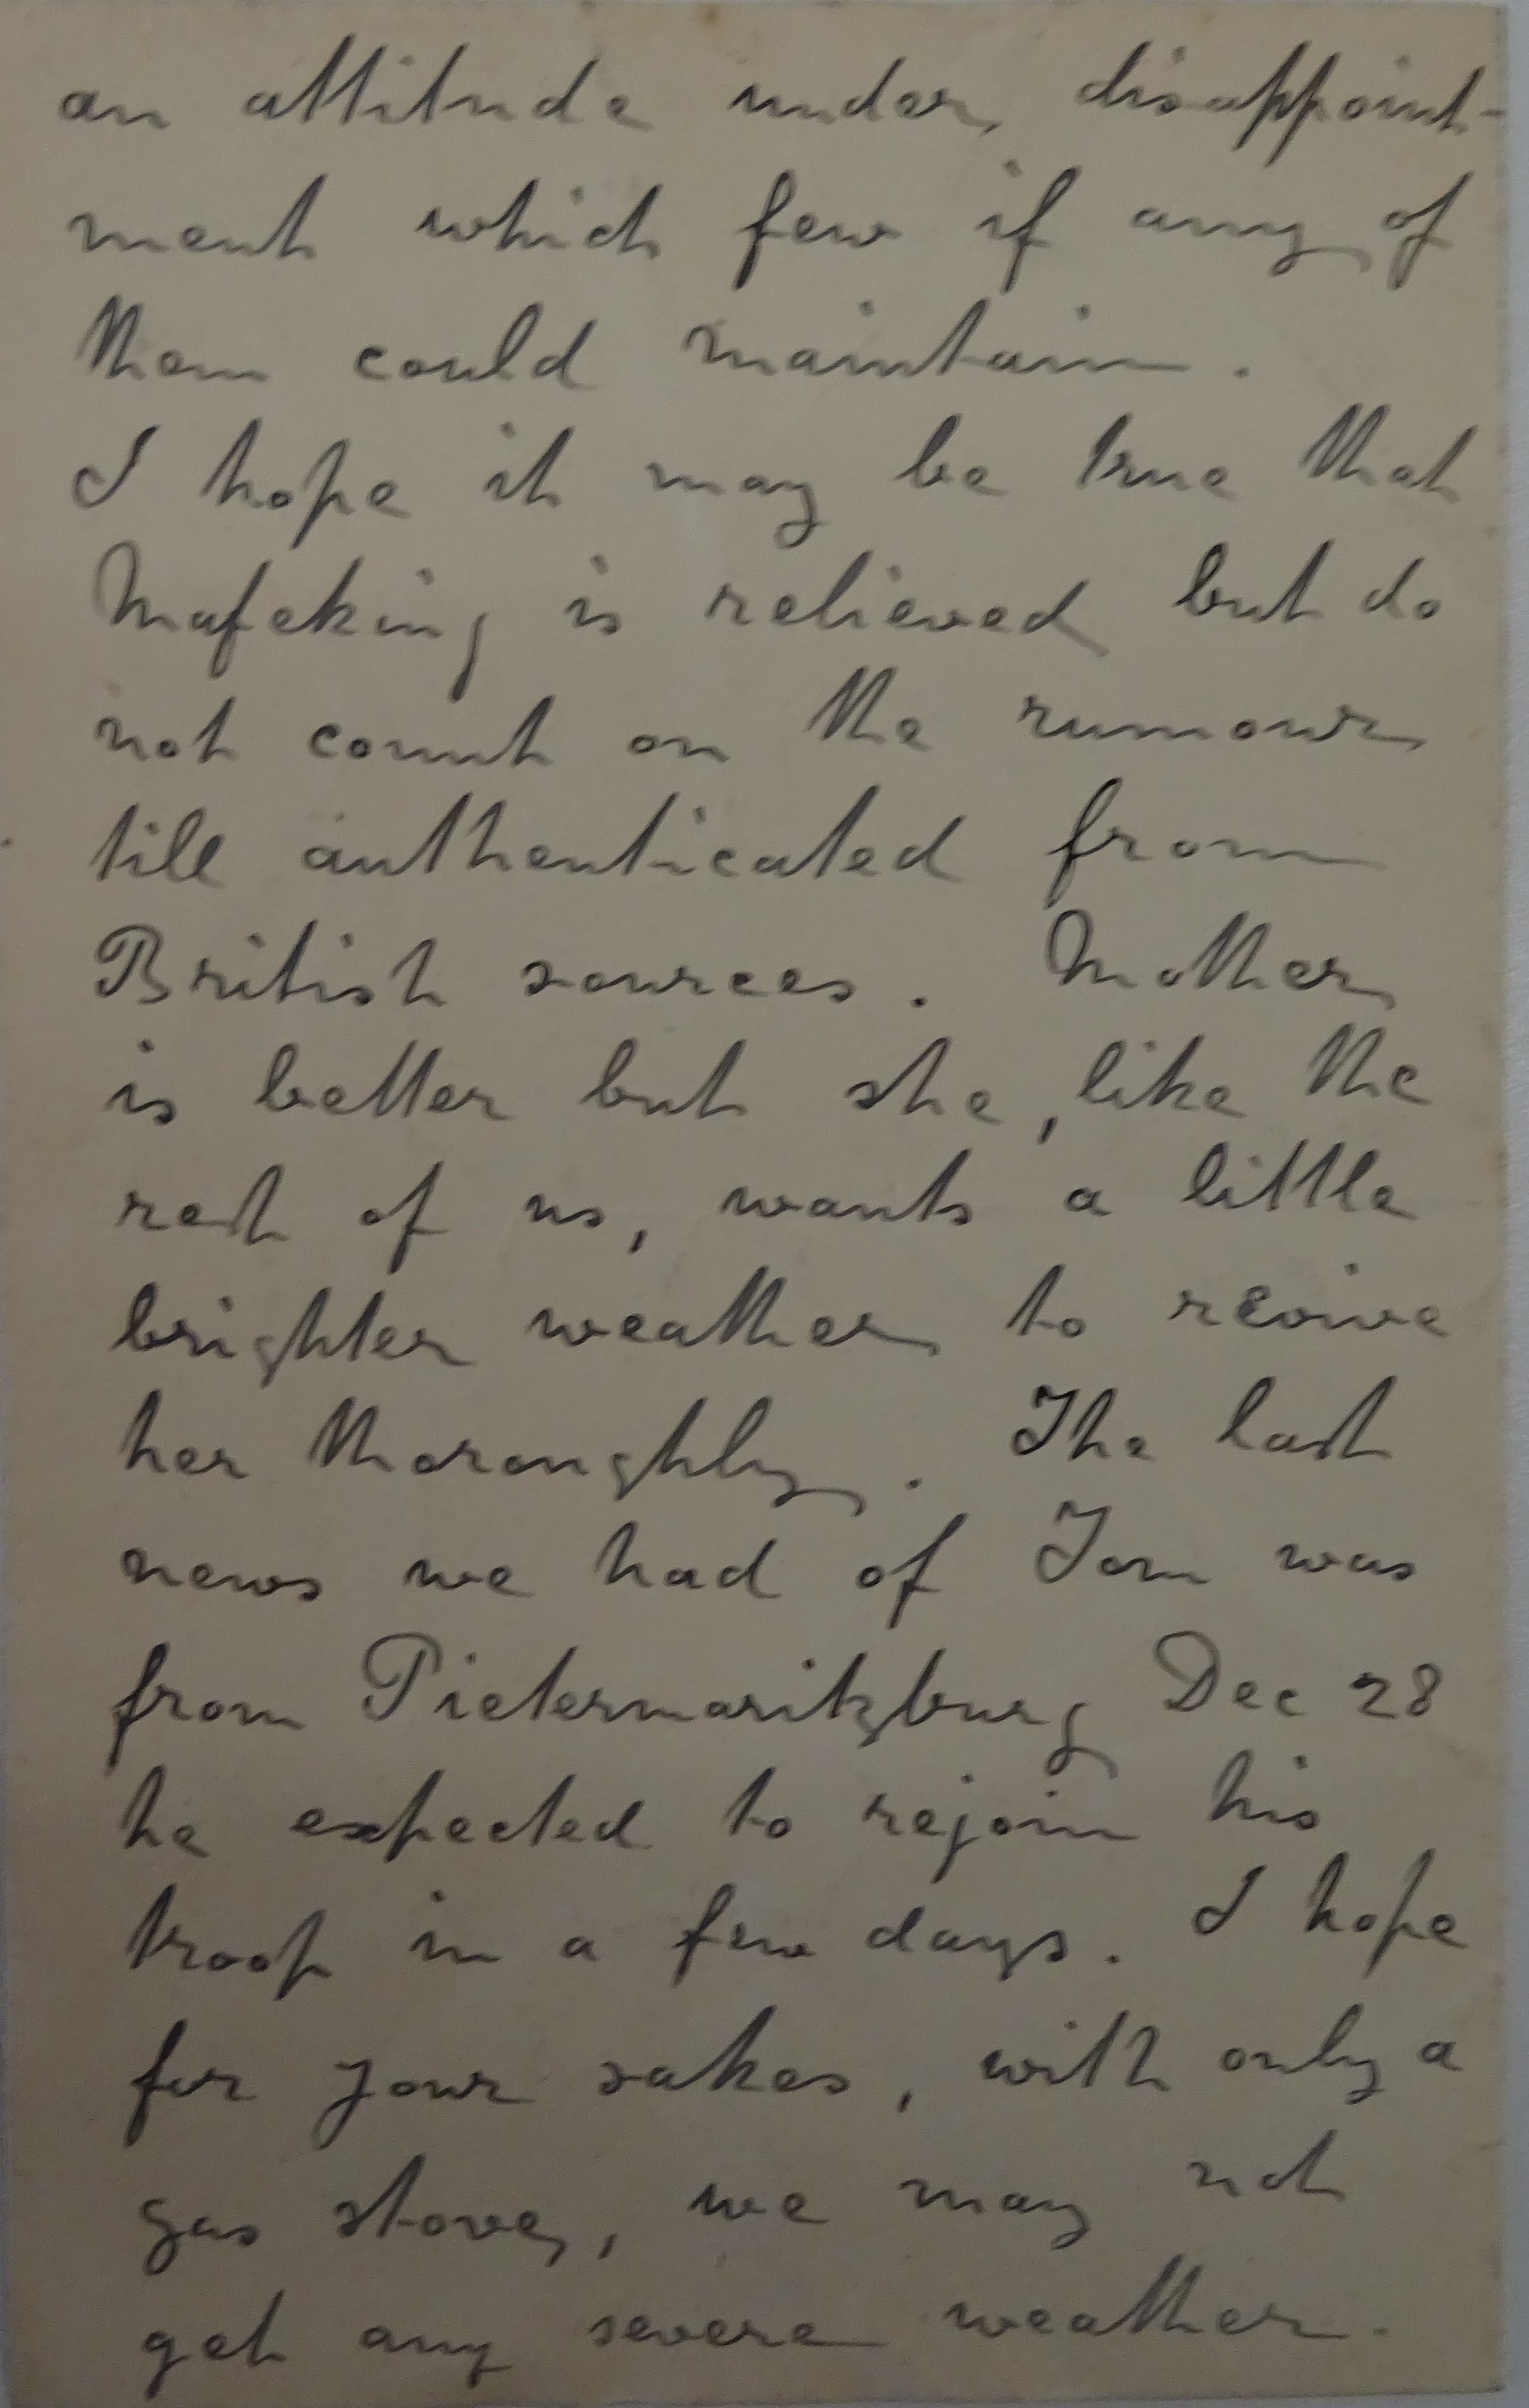 an attitude under disappoint-
ment which few if any of
them could maintain.
I hope it may be true that
Mafeking is relieved but do
not count on the rumour
till authenticated from
British sources. Mother
is better but she, like the
rest of us, wants a little
brighter weather to revive
her thoroughly. The last
news we had of Tom was
from Pietermaritzburg Dec 28
he expected to rejoin his
troop in a few days. I hope
for your sakes, with only a
gas stove, we may not
get any severe weather.